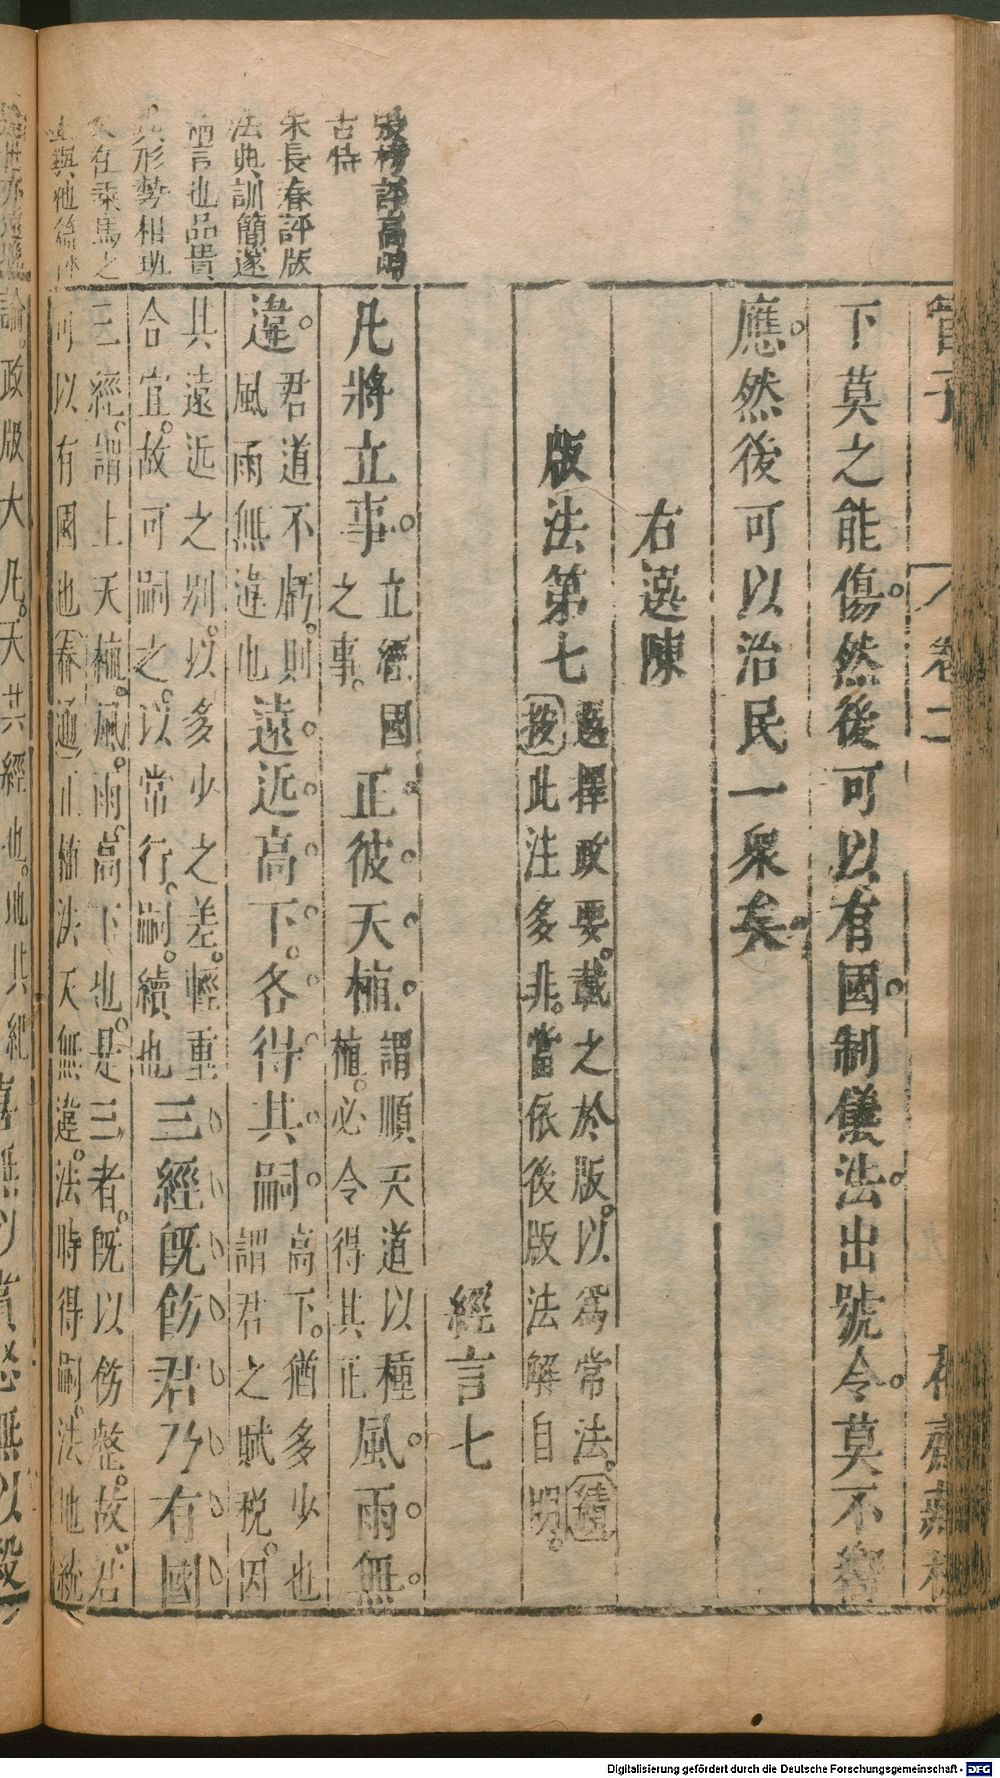 管子
卷二
花齋藏板
下莫之能傷。然後可以有國。制儀法。出號令。莫不嚮
應。然後可以治民一衆矣。
右選陳
版法第七
選擇政要。載之於版。以爲常法。續
按此注多非。當依後版法解自明。
經言七
凡將立事。
立經國
之事。
正彼天植。
謂順天道以種
植。必令得其正
風雨無
違。
君道不虧。則
風雨無違也
遠近高下。各得其嗣。
高下。猶多少也
謂君之賦稅。因
其遠近之別。以多少之差。輕重
合宜。故可嗣之。以常行。嗣。續也
三經既飭君乃有國
三經。謂上天植。風雨。高下也。是三者。既以飭整。故君
可以有國也 春通 正植法天無違。法時得嗣。法地統
張榜評高時
古特
朱長春評版
法典訓簡遂
有言也品貴
形勢相功
在乘馬之
與他篇
論。政版大凡。天其經也。地其紀
喜無以賞怒無以殺
Digitalisierung gefördert durch die Deutsche Forschungsgemeinschaft - DFG